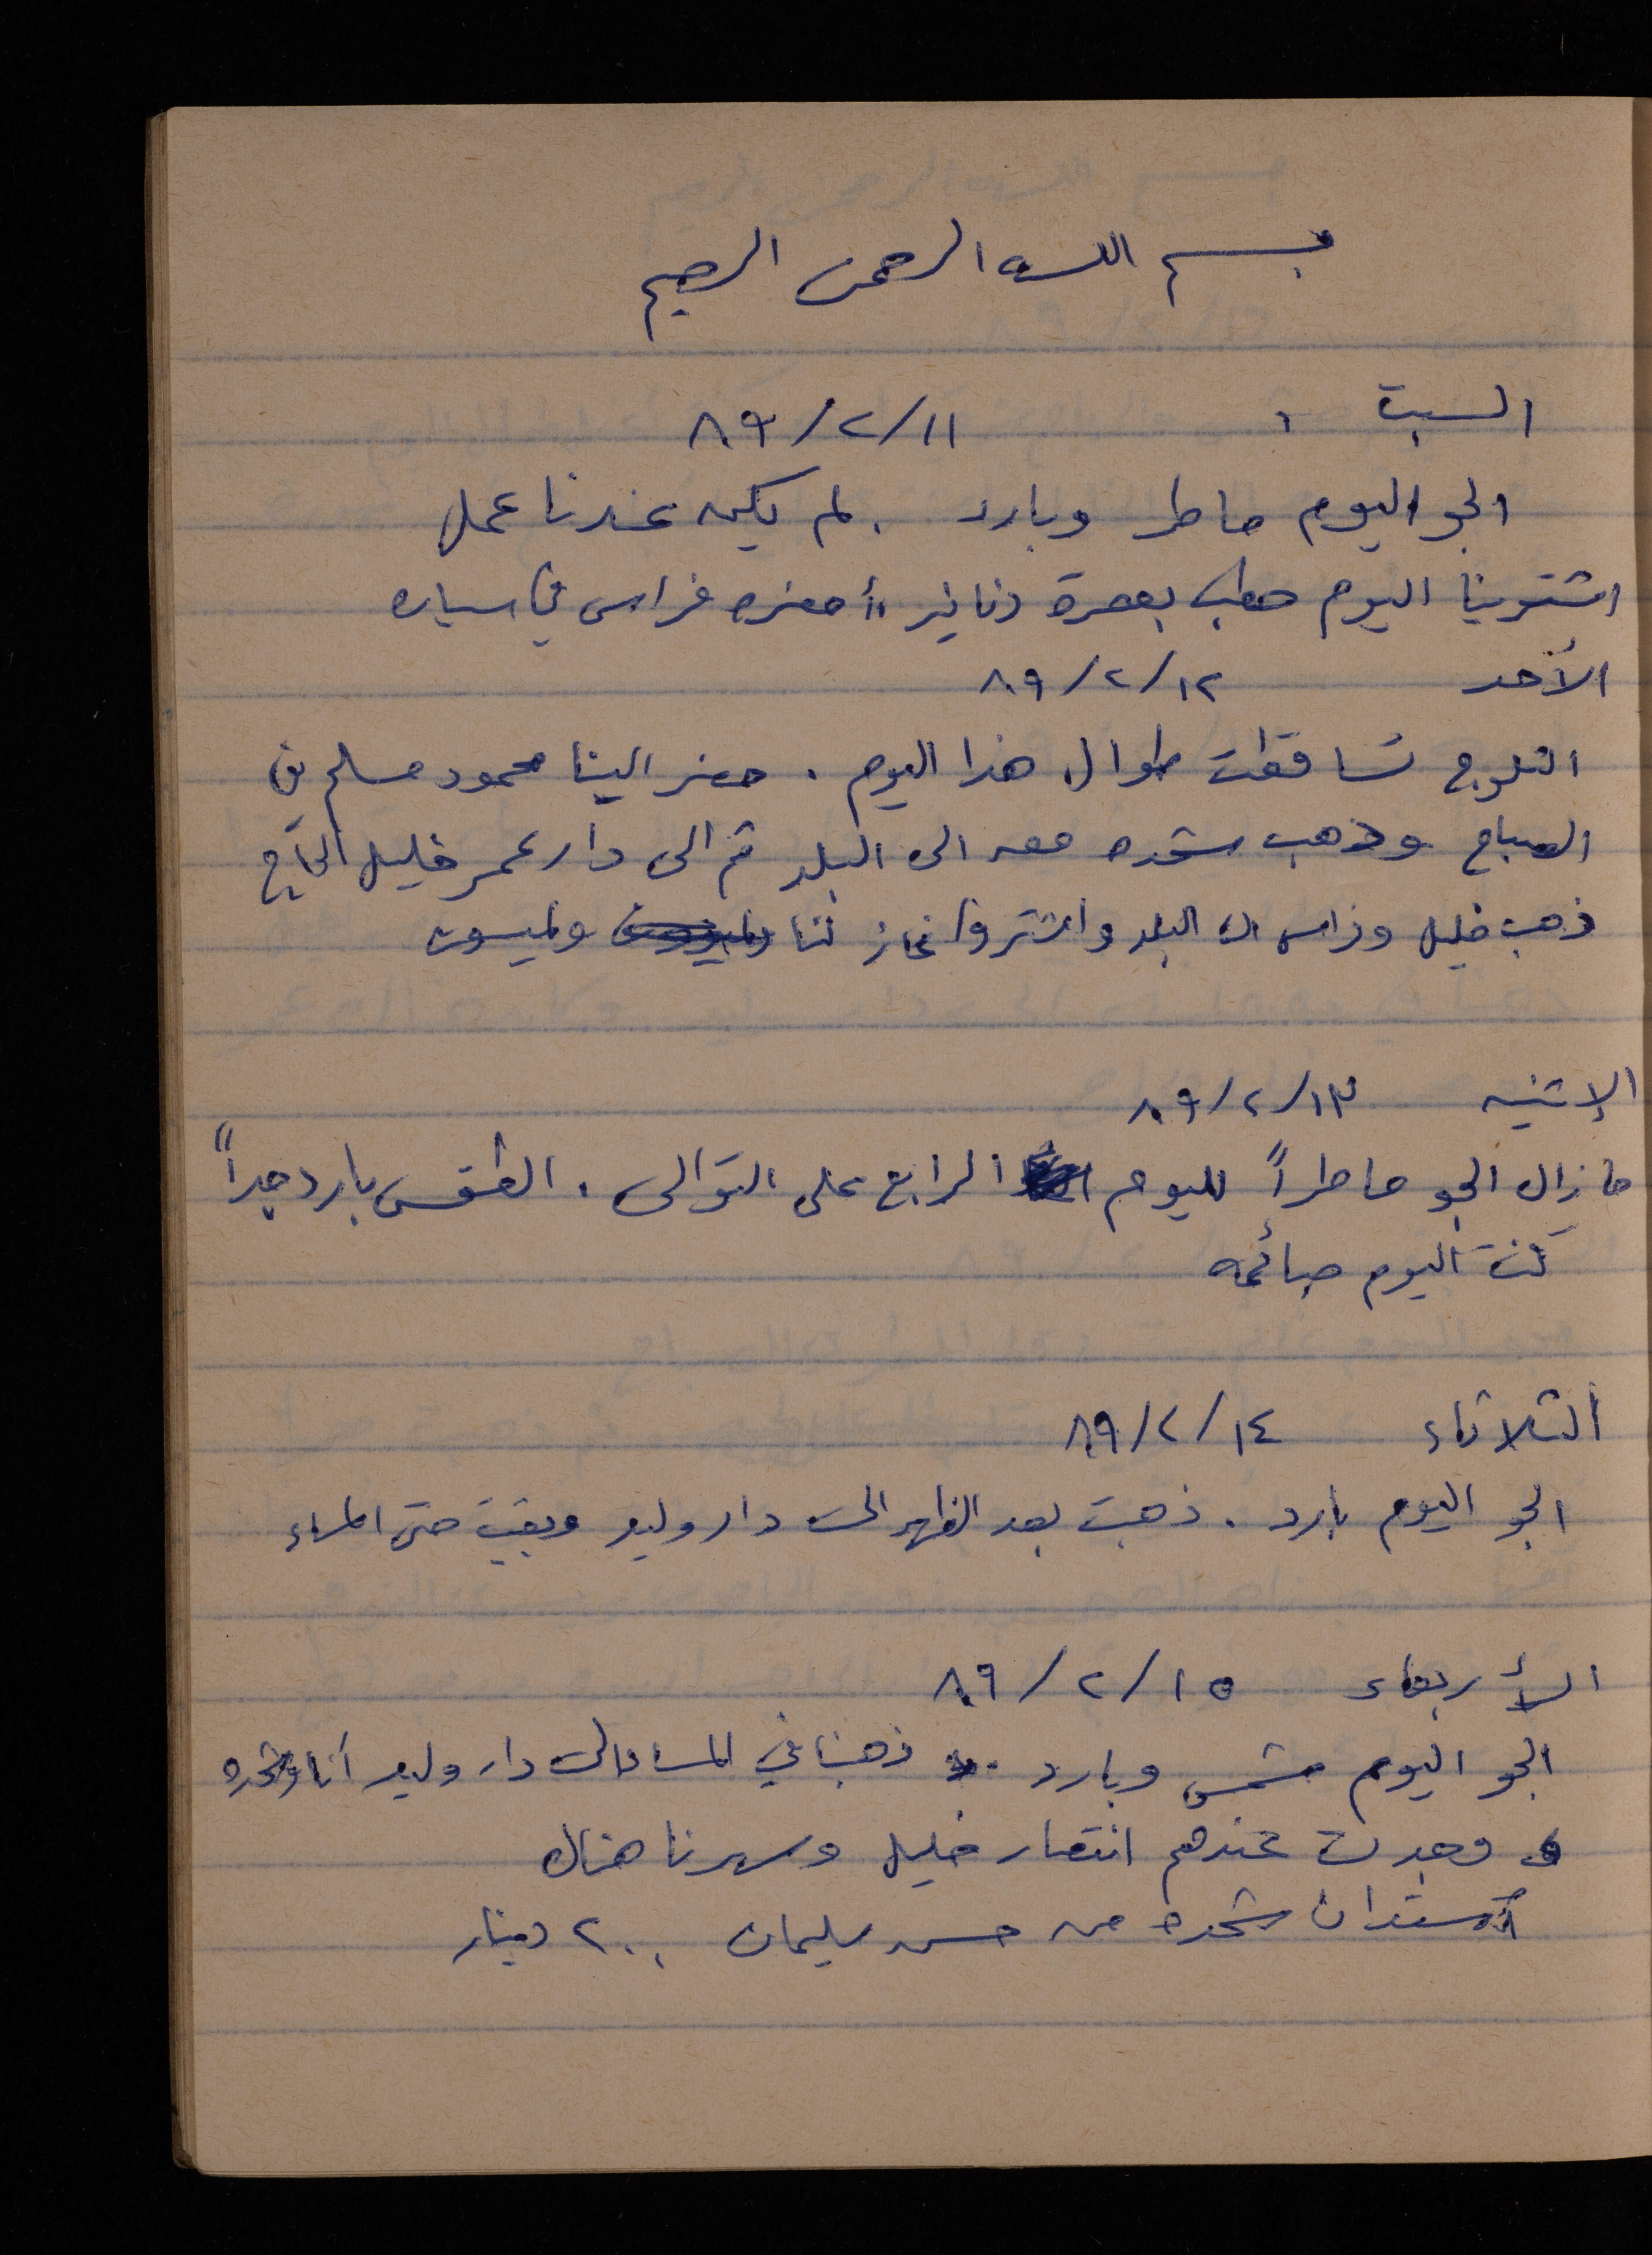 بسم الله الرحمن الرحيم
السبت ١١/٢/٨٩
الجو اليوم ماطر وبارد . لم يكن عندنا عمل
اشترينا اليوم حطب بعشرة دنانير أحضره فراس في سياره
الأحد ١٢/٢/٨٩
الثلوج تساقطت طوال هذا اليوم . حضر الينا محمود مسلم في
الصباح وذهب شحده معه الى البلد ثم الى دار عمر خليل الحاج
ذهب خليل وفراس الى البلد واشتروا غاز لنا ولميسون
الإثنين ١٣/٢/٨٩
مازال الجو ماطراً لليوم الرابع على التوالي . الطقس بارد جداً
كنت اليوم صائمه
الثلاثاء ١٤/٢/٨٩
الجو اليوم بارد . ذهبت بعد الظهر الى دار وليد وبقيت حتى المساء
الأربعاء ١٥/٢/٨٩
الجو اليوم مشمس وبارد . ذهبنا في المساء الى دار وليد أنا وشحده
وجدت عندهم انتصار خليل وسهرنا هناك
استدان شحده من حسن سليمان ٢٠٠ دينار